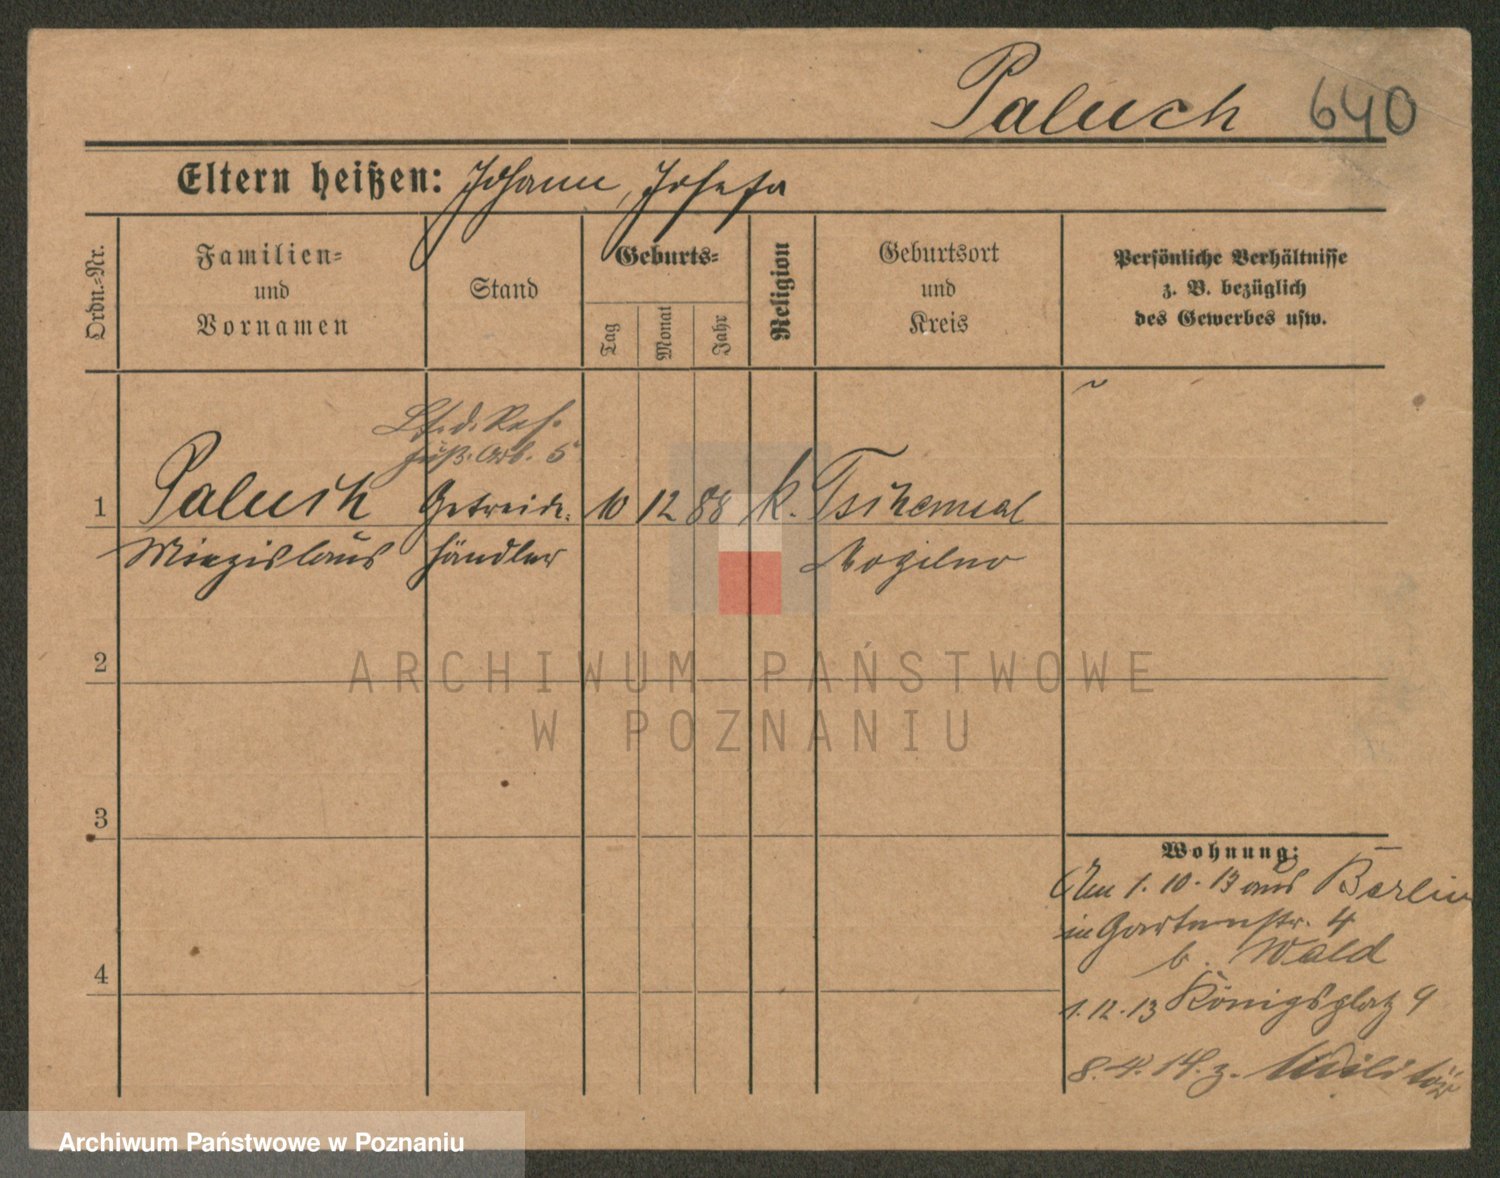 Paluch 640
Eltern heißen: Johann, Josefa
Ordn.-Nr.
Familien=
und
Vornamen
Stand
Geburts=
Tag
Monat
Jahr
Religion
Geburtsort
und
Kreis
Persönliche Verhältnisse
z. B. bezüglich
des Gewerbes usw.
Lt. d. Res.
Fuß. Art. 5
1 Paluch Getreide- 10 12 88 k. Tschemsal
Miezislaus händler Mogilno
2
3
4
Wohnung:
Am 1.10.13 aus Berlin
in Gartenstr. 4
b. Wald
1.12.13 Königsplatz 9
8.4.14. z. Militär
ARCHIWUM PAŃSTWOWE
W POZNANIU
Archiwum Państwowe w Poznaniu